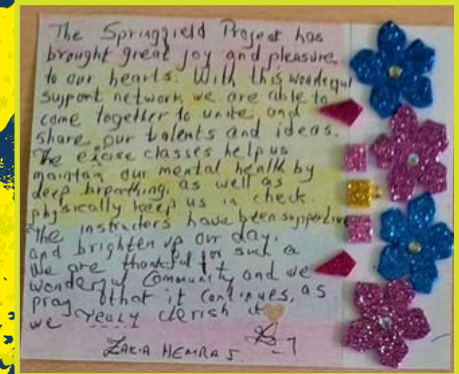 The Springfield Project has
brought great joy and pleasure
to our hearts. With this wonderful
support network we are able to
come together to unite and
share our talents and ideas.
The excise classes help us
maintain our mental health by
deep breathing, as well as
physically keep us in check.
The instructors have been supportive
and brighten up our day.
We are thankful for such a
wonderful Community and we
pray that it continues, as
we realy cherish it
ZAKIA HEMRAJ.